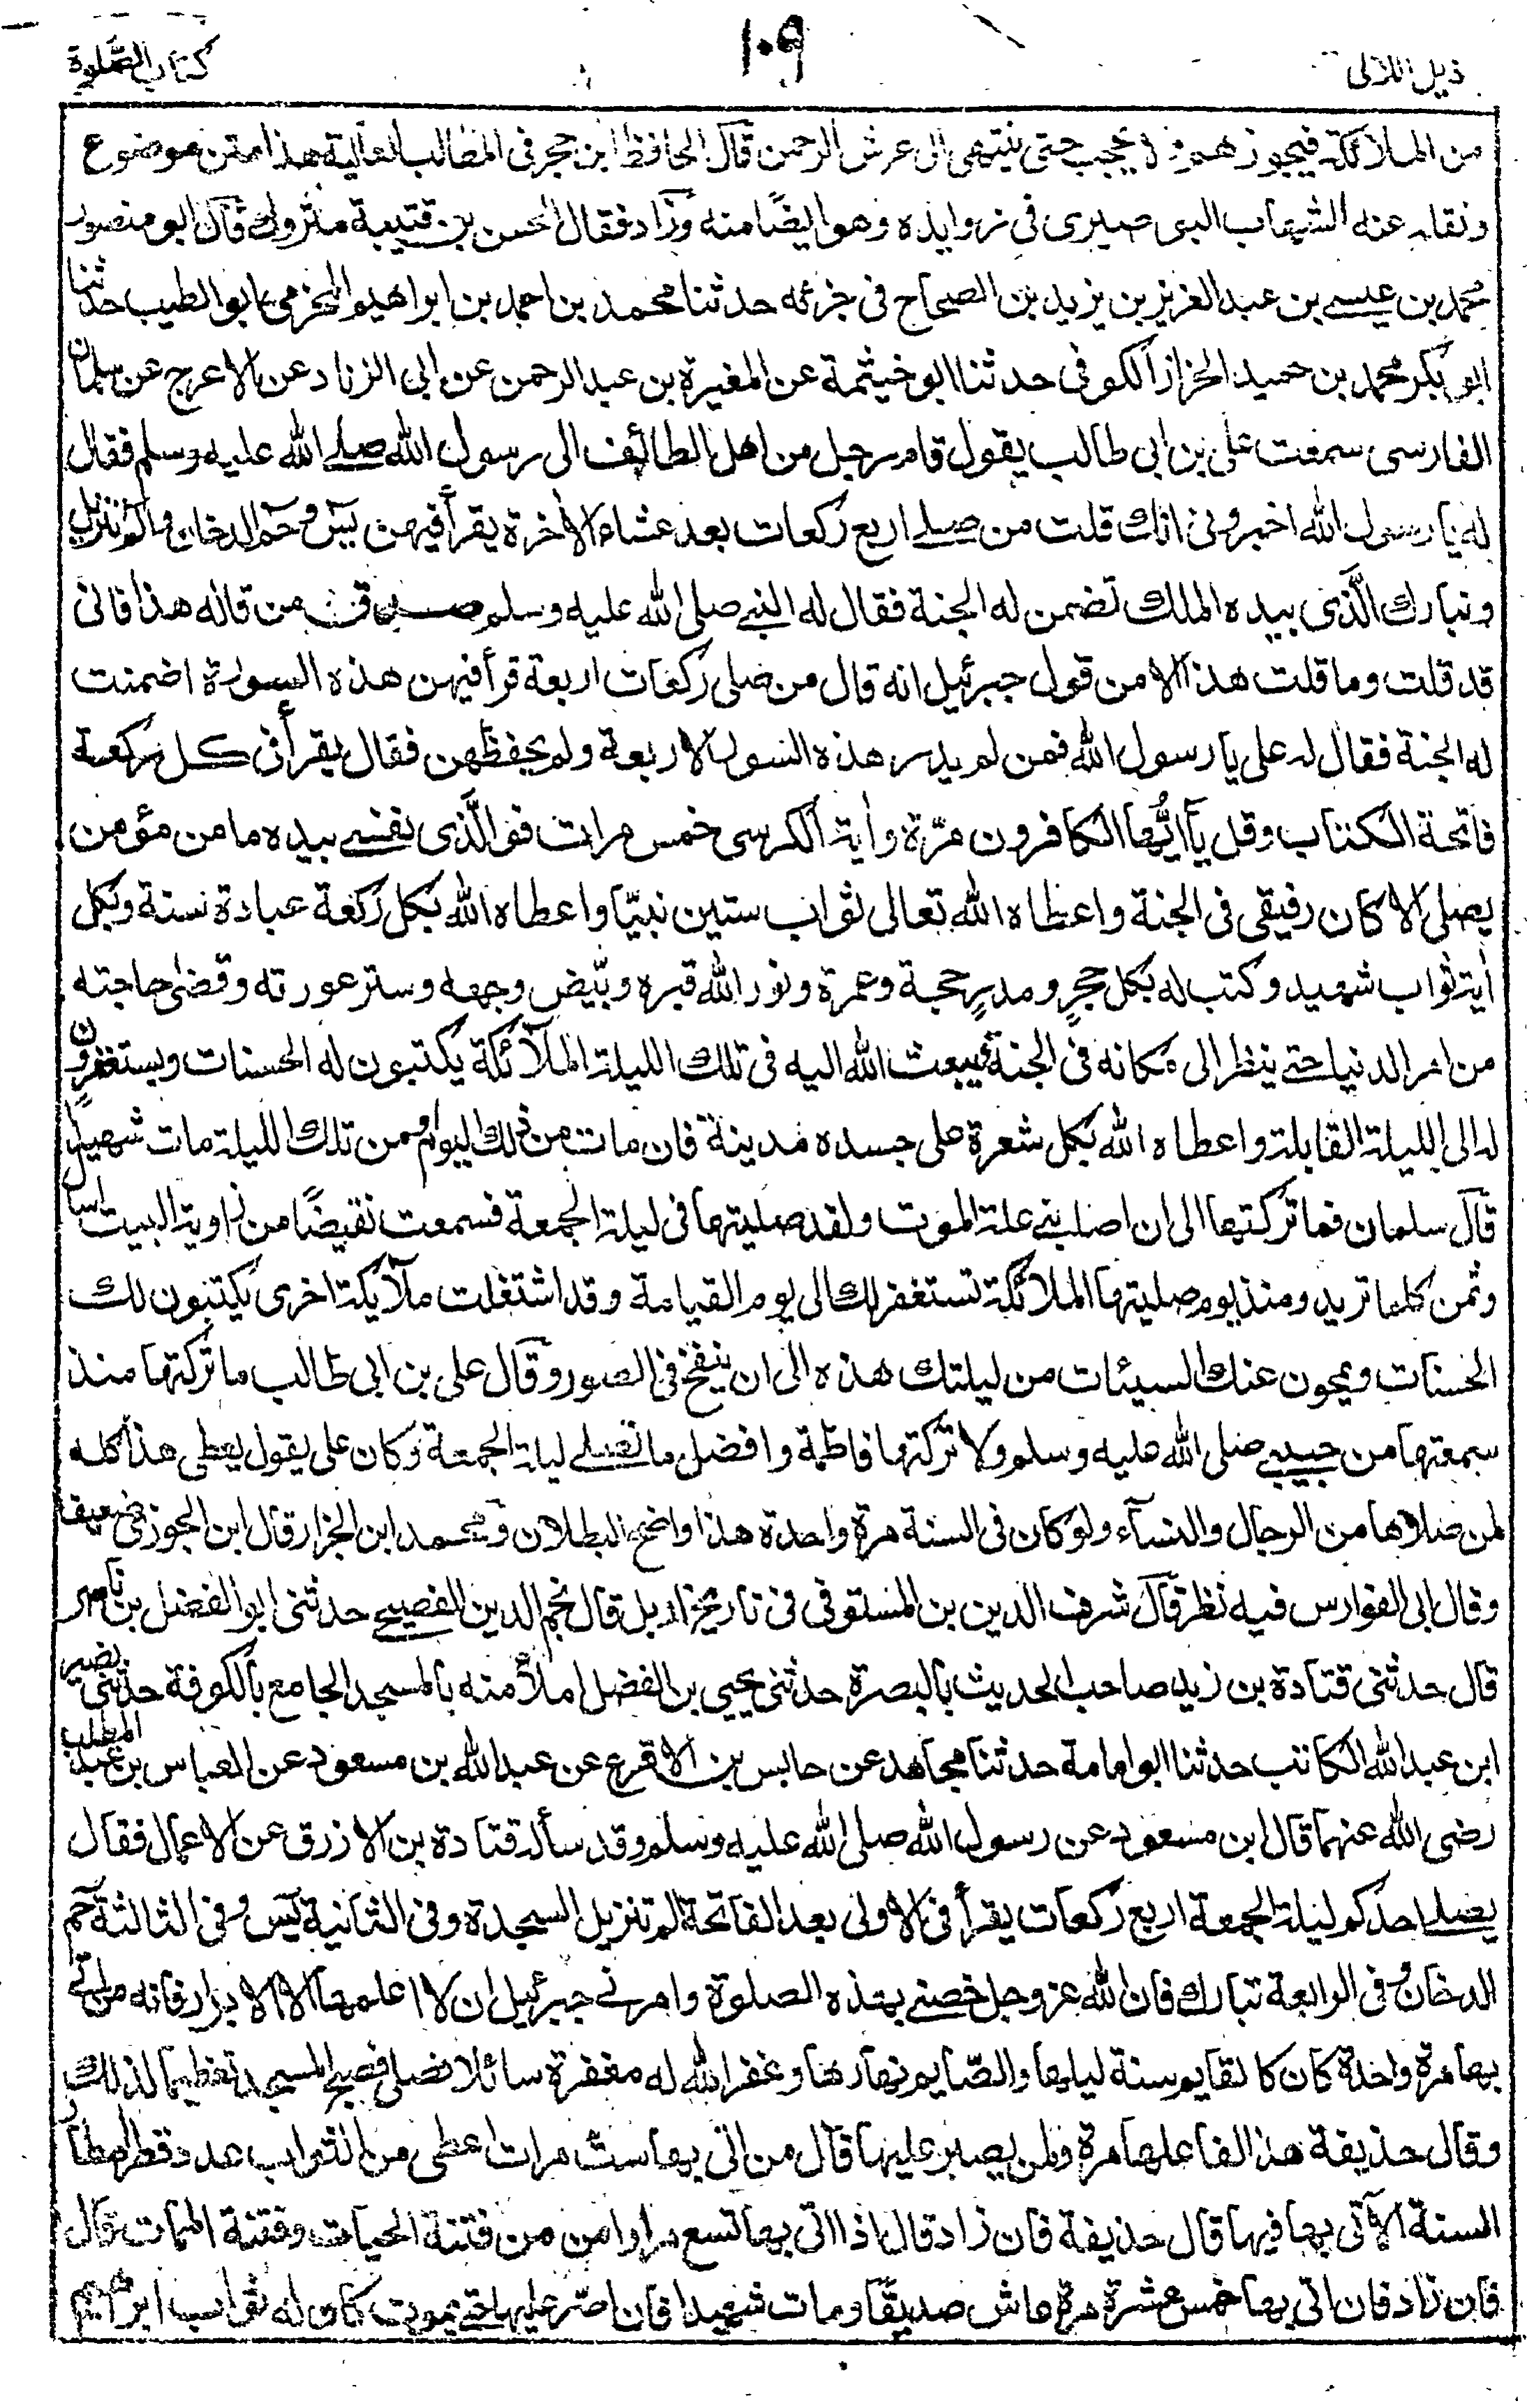 ذيل اللآلى
١٠٩
كتاب الصَّلوة
من الملائكة فيجوزهم فلا يحجب حتى ينتهى الى عرش الرحمن قال الحافظ ابن حجر فى المطالب العالية هذا متن موضوع
ونقله عنه الشهاب البوصيرى فى زوايده وهو ايضًا منه وزاد فقال الحسن بن قتيبة متروك قال ابو منصور
محمد بن عيسى بن عبد العزيز بن يزيد بن الصباح فى جزئه حدثنا محمد بن احمد بن ابراهيم المخرمى ابو الطيب حدثنا
ابو بكر محمد بن حميد الخزاز الكوفى حدثنا ابو خيثمة عن المغيرة بن عبد الرحمن عن ابى الزناد عن الاعرج عن سلمان
الفارسى سمعت على بن ابى طالب يقول قام رجل من اهل الطائف الى رسول الله صلى الله عليه وسلم فقال
له يا رسول الله اخبرونى انك قلت من صلى اربع ركعات بعد عشاء الاخرة يقرأ فيهن يٓس وحٓم الدخان والم تنزيل
وتبارك الَّذى بيده الملك تضمن له الجنة فقال له النبى صلى الله عليه وسلم صدق من قاله هذا فانى
قد قلت وما قلت هذا الا من قول جبرئيل انه قال من صلى ركعات اربعة قرأ فيهن هذه السورة اضمنت
له الجنة فقال له على يا رسول الله فمن لم يدر هذه السور الاربعة ولم يحفظهن فقال يقرأ فى كل ركعة
فاتحة الكتاب وقل يٓا ايُّها الكافرون مرّة واٰية الكرسى خمس مرات فو الَّذى نفسى بيده ما من مؤمن
يصلى الا كان رفيقى فى الجنة واعطاه الله تعالى ثواب ستين نبيّا واعطاه الله بكل ركعة عبادة سنة وبكل
اٰية ثواب شهيد وكتب له بكل حجرٍ ومدرٍ حجة وعمرة ونور الله قبره وبيّض وجهه وستر عورته وقضى حاجته
من امر الدنيا حتى ينظر الى مكانه فى الجنة يبعث الله اليه فى تلك الليلة الملائكة يكتبون له الحسنات ويستغفرون
له الى الليلة القابلة واعطاه الله بكل شعرة على جسده مدينة فان مات من ذلك اليوم ومن تلك الليلة مات شهيدا
قال سلمان فما تركتها الى ان اصابنى علة الموت ولقد صليتها فى ليلة الجمعة فسمعت نقيضًا من زاوية البيت
وثمن كلما تريد ومنذ يوم صليتها الملائكة تستغفر لك الى يوم القيامة وقد اشتغلت ملآيكة اخرى يكتبون لك
الحسنات ويمحون عنك السيئات من ليلتك هذه الى ان ينفخ فى الصور وقال على بن ابى طالب ما تركتها منذ
سمعتها من حبيبى صلى الله عليه وسلم ولا تركتها فاطمة وافضل ما تصلى ليلة الجمعة وكان على يقول يعطى هذا كله
لمن صلاها من الرجال والنسآء ولو كان فى السنة مرة واحدة هذا واضح البطلان ومحمد ابن الخزاز قال ابن الجوزى ضعيف
وقال ابى الفوارس فيه نظر قال شرف الدين بن المستوفى فى تاريخ اربل قال نجم الدين الفصيح حدثنى ابو الفضل بن ناصر
قال حدثنى قتادة بن زيد صاحب الحديث بالبصرة حدثنى يحيى بن الفضل املآء منه بالمسجد الجامع بالكوفة حدثنى نصير
ابن عبد الله الكاتب حدثنا ابو امامة حدثنا مجاهد عن حابس بن الاقرع عن عبد الله بن مسعود عن العباس بن عبد المطلب
رضى الله عنهما قال ابن مسعود عن رسول الله صلى الله عليه وسلم وقد سأله قتادة بن الازرق عن الاعمال فقال
يصلى احدكم ليلة الجمعة اربع ركعات يقرأ فى الاولى بعد الفاتحة الم تنزيل السجدة وفى الثانية يٓس وفى الثالثة حٓم
الدخان وفى الرابعة تبارك فان الله عز وجل خصنى بهذه الصلوة وامرنى جبرئيل ان لا اعلمها الا الابرار فانه من اتى
بها مرة واحدة كان كالقايم سنة ليلها والصّايم نهارها وغفر الله له مغفرة سائلا فصلى فصيح المسجد تعظيما لذلك
وقال حذيفة هذا لفاعلها مرة ولمن يصبر عليها قال من اتى بها ست مرات اعطى من الثواب عدد قطر المطار
السنة الآتى بها فيها قال حذيفة فان زاد قال اذا اتى بها تسع مرار امن من فتنة الحيات وفتنة الممات قال
فان زاد فان اتى بها خمس عشرة مرة عاش صديقًا ومات شهيدا فان اصرّ عليها حتى يموت كان له ثواب ابراهيم